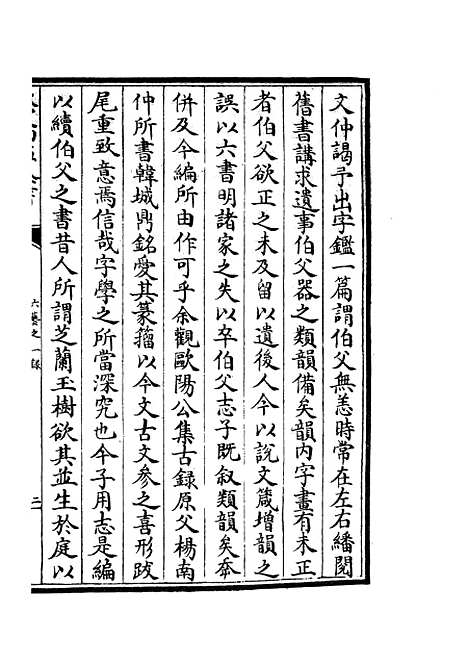 文仲謁予出字鑑一篇謂伯父無恙時常在左右繙閱
舊書講求遺事伯父器之類韻備矣韻内字畫有未正
者伯父欲正之未及留以遺後人今以説文箴增韻之
誤以六書明諸家之失以卒伯父志子既叙類韻矣奈
併及今編所由作可乎余觀歐陽公集古録原父楊南
仲所書韓城鼎銘愛其篆籀以今文古文參之喜形跋
尾重致意焉信哉字學之所當深究也今子用志是編
以續伯父之書昔人所謂芝蘭玉樹欲其並生於庭以
六藝之一録
二